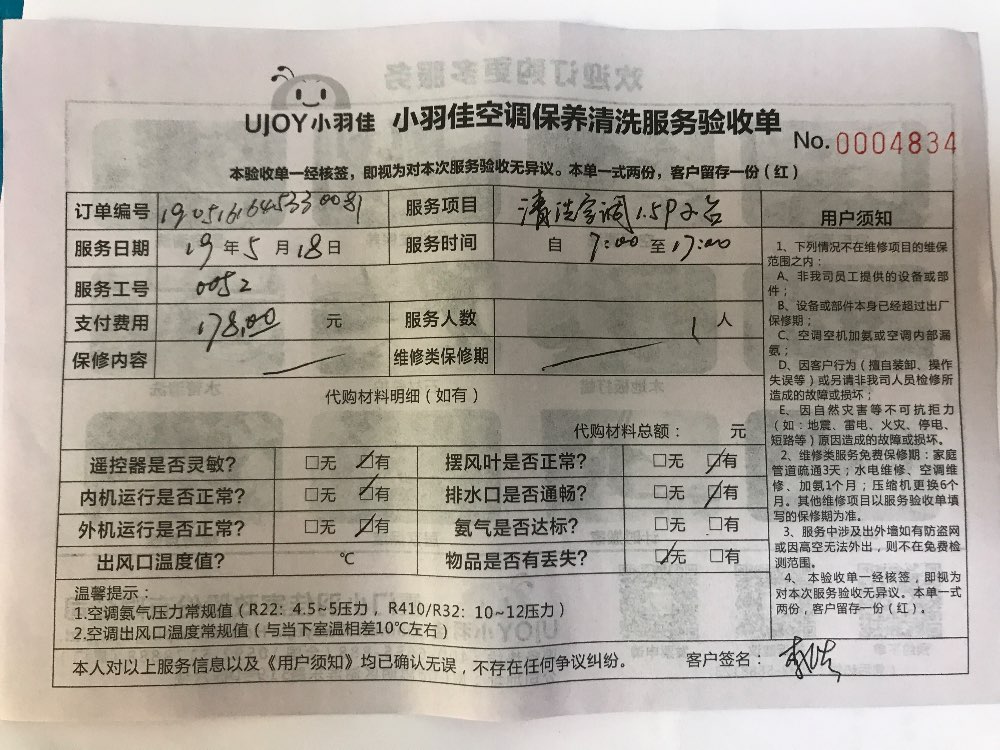 UJOY小羽佳 小羽佳空调保养清洗服务验收单
No. 0004834
本验收单一经核签，即视为对本次服务验收无异议。本单一式两份，客户留存一份（红）
订单编号 1905161645330081 服务项目 清洗空调1.5P2台
服务日期 19年5月18日 服务时间 自 7:00 至 17:00
服务工号 0052
支付费用 178.00 元 服务人数 1 人
保修内容 维修类保修期
代购材料明细（如有）
代购材料总额： 元
遥控器是否灵敏? □无 ☑有 摆风叶是否正常? □无 ☑有
内机运行是否正常? □无 ☑有 排水口是否通畅? □无 ☑有
外机运行是否正常? □无 ☑有 氨气是否达标? □无 □有
出风口温度值? ℃ 物品是否有丢失? ☑无 □有
温馨提示：
1.空调氨气压力常规值（R22：4.5~5压力，R410/R32：10~12压力）
2.空调出风口温度常规值（与当下室温相差10℃左右）
本人对以上服务信息以及《用户须知》均已确认无误，不存在任何争议纠纷。 客户签名：
用户须知
1、下列情况不在维修项目的维保
范围之内：
A、非我司员工提供的设备或部
件；
B、设备或部件本身已经超过出厂
保修期；
C、空调空机加氨或空调内部漏
氨；
D、因客户行为（擅自装卸、操作
失误等）或另请非我司人员检修所
造成的故障或损坏；
E、因自然灾害等不可抗拒力
（如：地震、雷电、火灾、停电、
短路等）原因造成的故障或损坏。
2、维修类服务免费保修期：家庭
管道疏通3天；水电维修、空调维
修、加氨1个月；压缩机更换6个
月。其他维修项目以服务验收单填
写的保修期为准。
3、服务中涉及出外墙如有防盗网
或因高空无法外出，则不在免费检
测范围。
4、本验收单一经核签，即视为
对本次服务验收无异议。本单一式
两份，客户留存一份（红）。